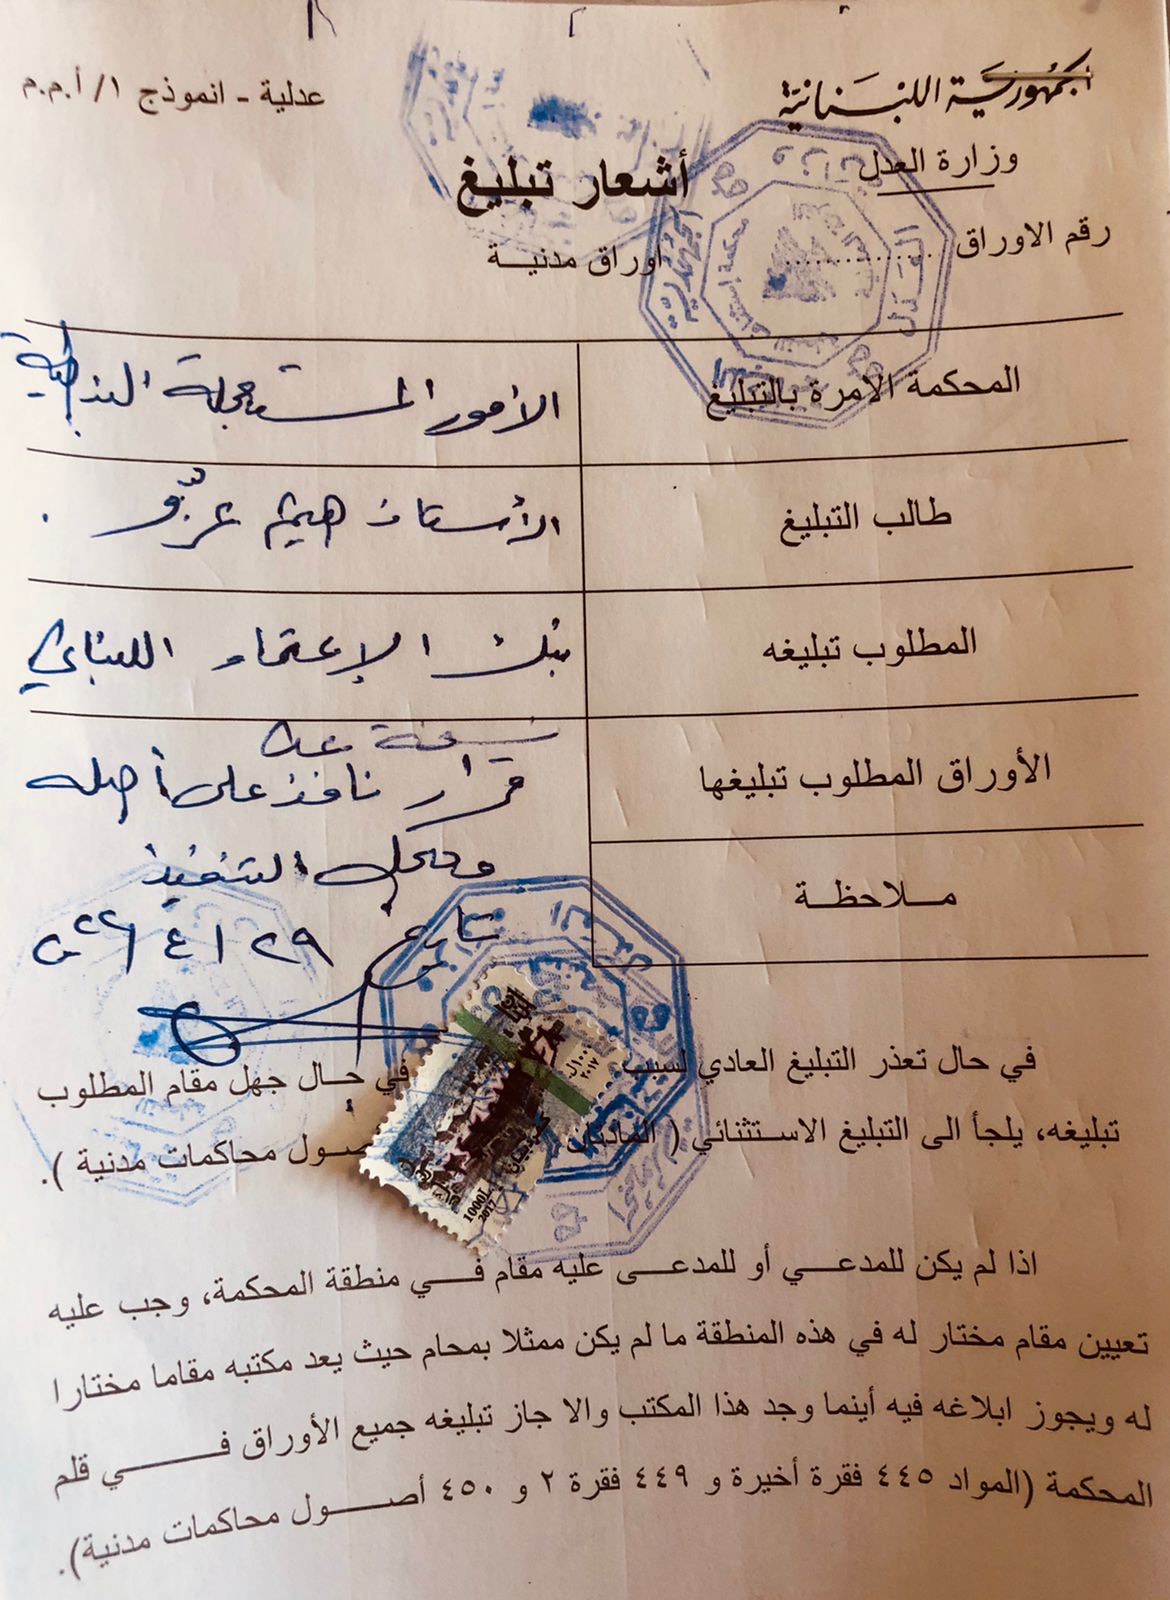 الجمهورية اللبنانية
وزارة العدل
رقم الاوراق ................
عدلية - انموذج ١/ أ.م.م
أشعار تبليغ
اوراق مدنية
المحكمة الامرة بالتبليغ
الأمور المستعجلة
طالب التبليغ
الأستاذ هيثم عزّو .
المطلوب تبليغه
بنك الإعتماد اللبناني
الأوراق المطلوب تبليغها
نسخة عن
قرار نافذ على أصله
ملاحظة
التنفيذ
تاريخ ٢٩ / ٤ /
في حال تعذر التبليغ العادي لسبب في حال جهل مقام المطلوب
تبليغه، يلجأ الى التبليغ الاستثنائي ( المادتان محاكمات مدنية ).
اذا لم يكن للمدعي أو للمدعى عليه مقام في منطقة المحكمة، وجب عليه
تعيين مقام مختار له في هذه المنطقة ما لم يكن ممثلا بمحام حيث يعد مكتبه مقاما مختارا
له ويجوز ابلاغه فيه أينما وجد هذا المكتب والا جاز تبليغه جميع الأوراق في قلم
المحكمة (المواد ٤٤٥ فقرة أخيرة و ٤٤٩ فقرة ٢ و ٤٥٠ أصول محاكمات مدنية).
1000L
2017